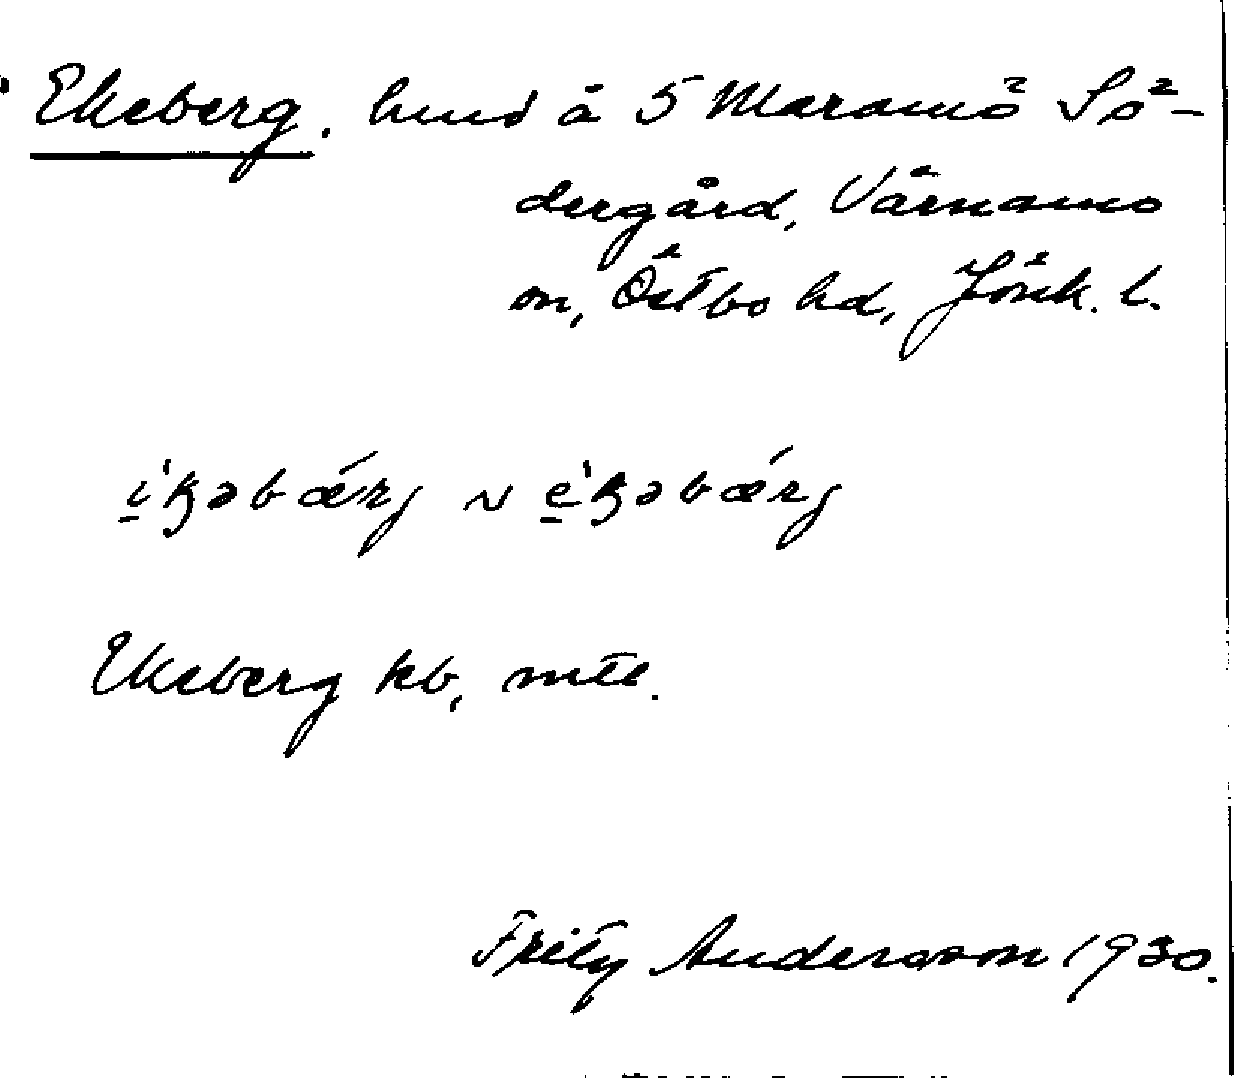 Ekeberg. hmd å 5 Maramö Sö-
dergård, Värnamo
sn, Östbo hd, Jönk. l.
i̠'ꞣəbǽrj ~ e̠'ꞣəbǽrj
Ekeberg kb, mtl.
Frity Andersson 1930.